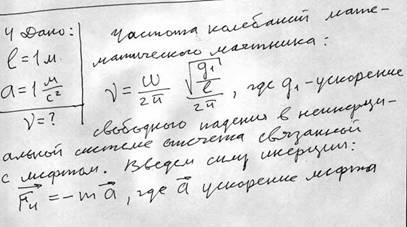 4 Дано:
l = 1 м
a = 1 м/с²
ν = ?
Частота колебаний мате-
матического маятника:
ν = ω/2π √(g₁/l)/2π, где g₁ - ускорение
свободного падения в неинерци-
альной системе отсчета связанной
с лифтом. Введем силу инерции:
F⃗и = -m a⃗, где a⃗ ускорение лифта